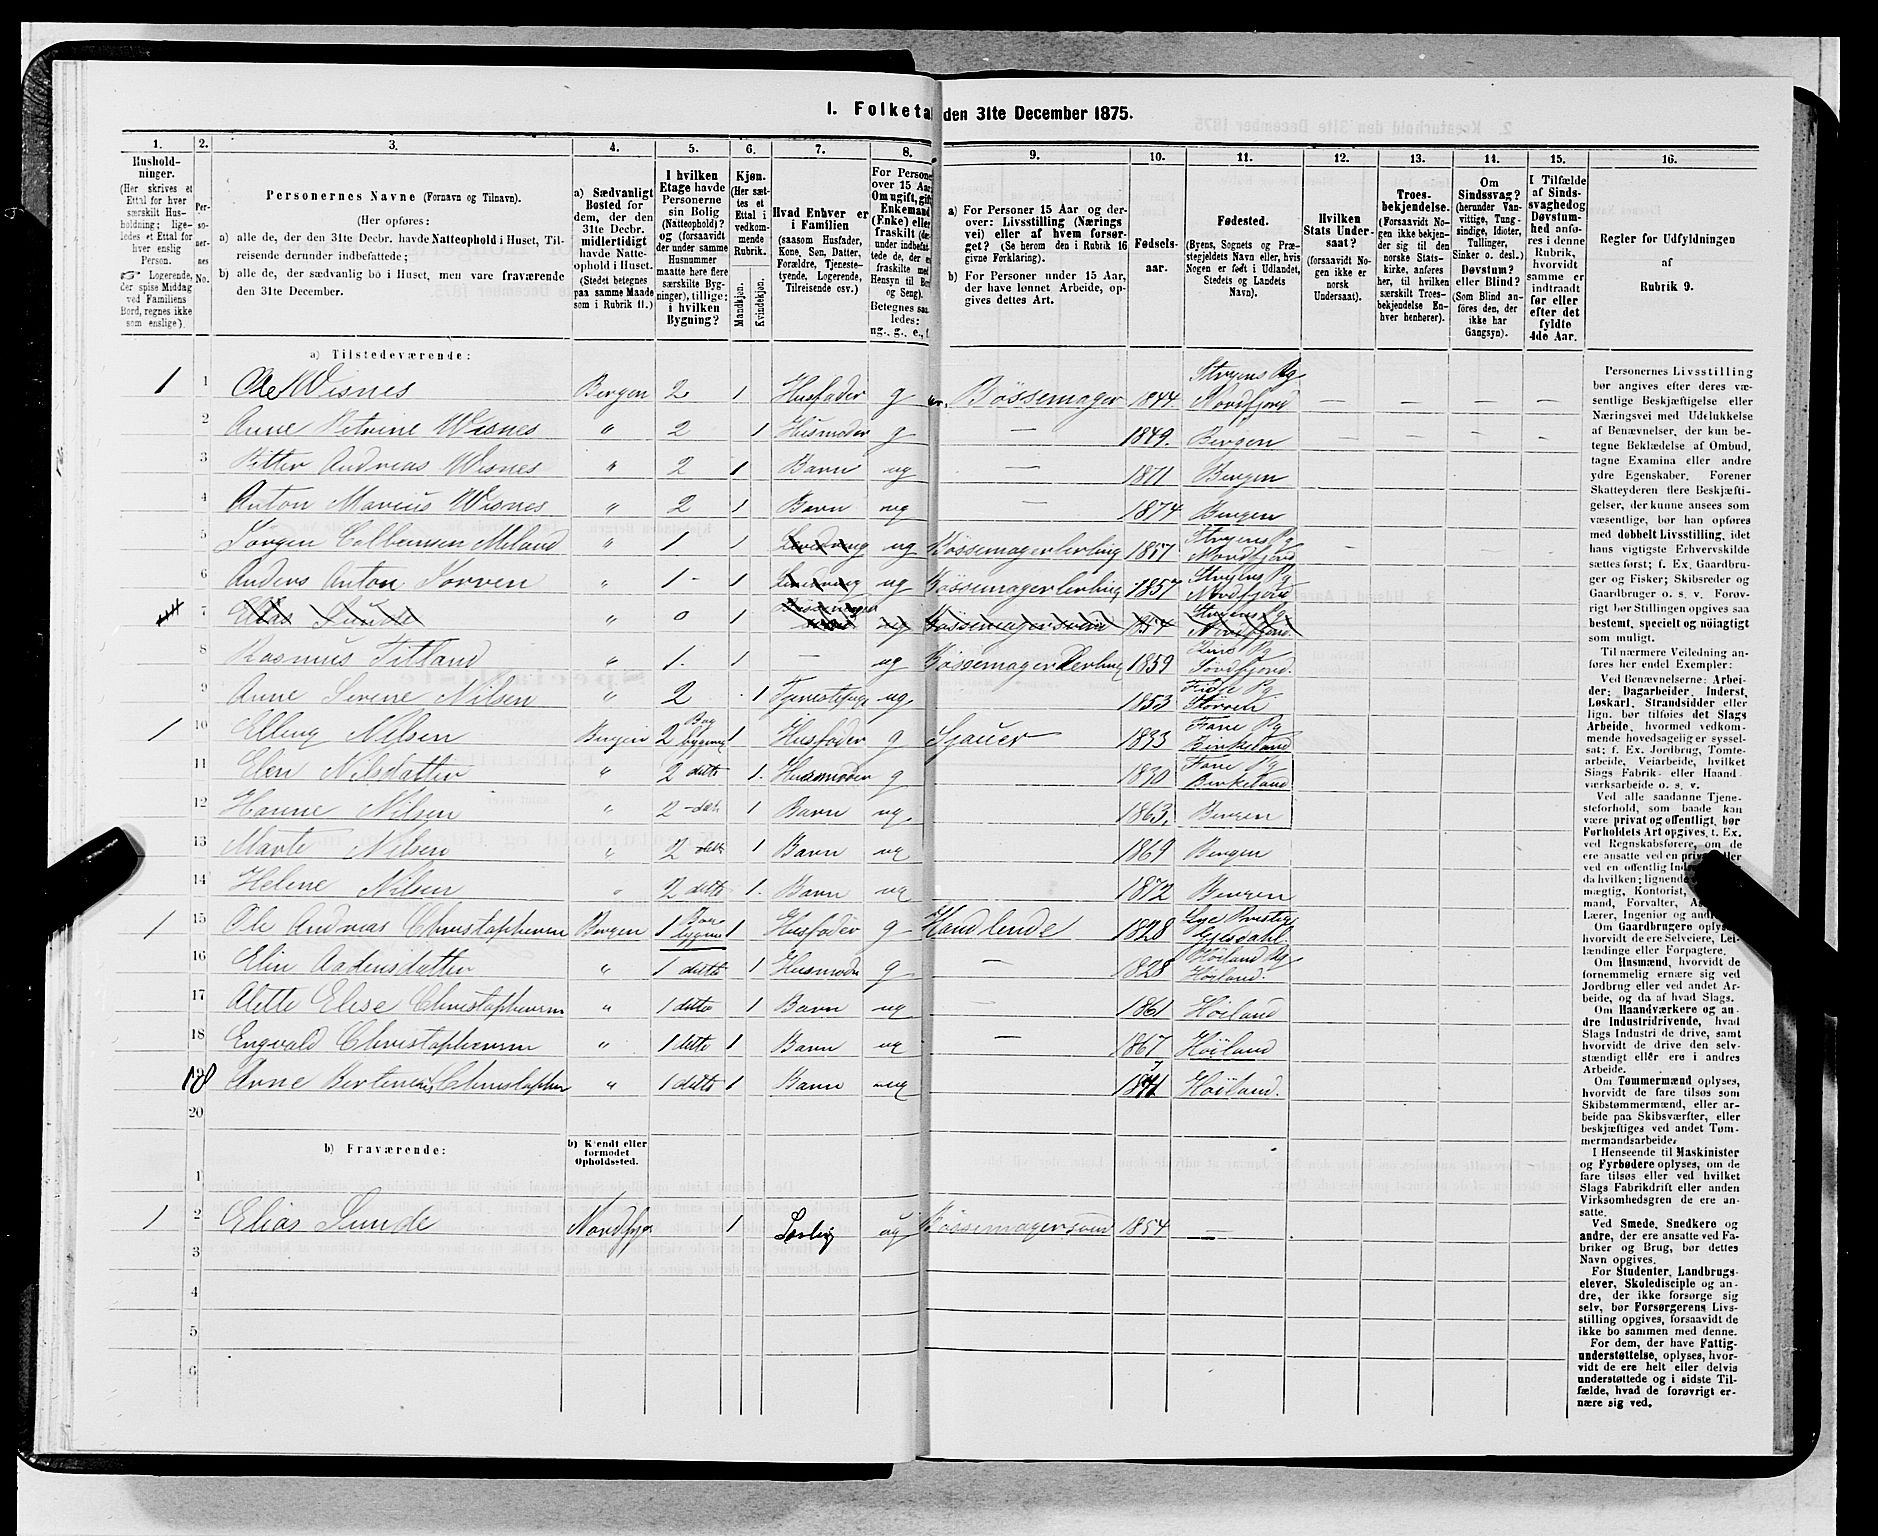 I. Folketal den 31te December 1875.
1.
Hushold-
ninger.
(Her skrives et
Ettal for hver
særskilt Hus-
holdning; lige-
ledes et Ettal for
hver enslig
Person.
☞ Logerende,
der spise Middag
ved Familiens
Bord, regnes ikke
som enslige).
2.
Per-
so-
ner-
nes
No.
3.
Personernes Navne (Fornavn og Tilnavn).
(Her opføres:
a) alle de, der den 31te Decbr. havde Natteophold i Huset, Til-
reisende derunder indbefattede;
b) alle de, der sædvanlig bo i Huset, men vare fraværende
den 31te December.
4.
a) Sædvanligt
Bosted for
dem, der den
31te Decbr.
midlertidigt
havde Natte-
ophold i Huset.
(Stedet betegnes
paa samme Maade
som i Rubrik 11.)
5.
I hvilken
Etage havde
Personerne
sin Bolig
(Natteophold)?
og (forsaavidt
der under samme
Husnummer
maatte høre flere
særskilte Byg-
ninger), tillige:
i hvilken
Bygning?
6.
Kjøn.
(Her sæt-
tes et
Ettal i
vedkom-
mende
Rubrik.
Mandkjøn.
Kvindekjøn.
7.
Hvad Enhver er
i Familien
(saasom Husfader,
Kone, Søn, Datter,
Forældre, Tjeneste-
tyende, Logerende,
Tilreisende osv.)
8.
For Personer
over 15 Aar:
Om ugift, gift,
Enkemand
(Enke) eller
fraskilt
ledes:
ug., g., e., f.
9.
a) For Personer 15 Aar og der-
over: Livsstilling (Nærings
vei) eller af hvem forsør-
get? (Se herom den i Rubrik 16
givne Forklaring).
b) For Personer under 15 Aar,
der have lønnet Arbeide, op-
gives dettes Art.
10.
Fødsels-
aar.
11.
Fødested.
(Byens, Sognets og Præ-
stegjeldets Navn eller, hvis
Nogen er født i Udlandet,
Stedets og Landets
Navn).
12.
Hvilken
Stats Under-
saat?
(forsaavidt No-
gen ikke er
norsk
Undersaat).
13.
Troes-
bekjendelse.
(Forsaavidt No-
gen ikke bekjen-
der sig til den
norske Stats-
kirke, anføres
her, til hvilken
særskilt Troes-
bekjendelse En-
hver henhører).
14.
Om
Sindssvag?
(herunder Van-
vittige, Tung-
sindige, Idioter,
Tullinger,
Sinker o. desl.)
Døvstum?
eller Blind?
(Som Blind an-
føres den, der
ikke har
Gangsyn).
15.
I Tilfælde
af Sinds-
svaghed og
Døvstum-
hed anfø-
res i denne
Rubrik,
hvorvidt
samme er
indtraadt
før eller
efter det
fyldte
4de Aar.
16.
Regler for Udfyldningen
af
Rubrik 9.
a) Tilstedeværende:
1 1 Ole Wisnes Bergen 2 1 Husfader g Bössemager 1844 Stryens Pg Nordfjord — — — —
2 Anne Petrine Wisnes " 2 1 Husmoder g — 1849. Bergen
3 Petter Andreas Wisnes " 2 1 Barn ug — 1871 Bergen
4 Anton Marius Wisnes " 2 1 Barn ug — 1874 Bergen
5 Jørgen " 1 1 ug Bössemagerlerling 1857 Stryens Pg Nordfjord
6 Anders Anton " 1 1 ug Bössemagerlerling 1857 Stryens Pg Nordfjord
7 Elias Sunde " 0 1 ug Bössemagersvein 1854 Stryens Pg Nordfjord
8 Rasmus " 1 1 — ug Bössemagerlerling 1859 Söndfjord.
9 Anne Serene Nilsen " 2 1 Tjenestepige ug 1853
1 10 Elling Nilsen Bergen 2 Bag bygning 1 Husfader g Sjauer 1833 Fane Pg Birkeland
11 Elen Nilsdatter " 2 detto 1 Husmoder g 1830 Fane Pg Birkeland
12 Hanne Nilsen " 2 det 1 Barn ug 1863. Bergen
13 Marte Nilsen " 2 detto 1 Barn ug 1869 Bergen
14 Helene Nilsen " 2 detto 1 Barn ug 1872 Bergen
1 15 Ole Andreas Christophersen Bergen 1 Bag bygning 1 Husfader g Handlende 1828 Gjesdahl
16 Elin " 1 detto 1 Husmoder g — 1828 Höiland Pg Höiland.
17 Alette Elise Christophersen " 1 detto 1 Barn ug — 1861 Höiland
18 Engvald Christophersen " 1 detto 1 Barn ug — 1867 Höiland
18 Arne Christophersen " 1 detto 1 Barn ug 1871 Höiland.
20
b) Fraværende:
b) Kjendt eller
formodet
Opholdssted.
1
1 2 Elias Sunde Nordfjor 1 ug Bössemagersvein 1854 —
3
4
5
6
Personernes Livsstilling
bør angives efter deres væ-
sentlige Beskjæftigelse eller
Næringsvei med Udelukkelse
af Benævnelser, der kun be-
tegne Beklædelse af Ombud,
tagne Examina eller andre
ydre Egenskaber. Forener
Skatteyderen flere Beskjæfti-
gelser, der kunne ansees som
væsentlige, bør han opføres
med dobbelt Livsstilling, idet
hans vigtigste Erhvervskilde
sættes først; f. Ex. Gaardbru-
ger og Fisker; Skibsreder og
Gaardbruger o. s. v. Forøv-
rigt bør Stillingen opgives saa
bestemt, specielt og nøiagtigt
som muligt.
Til nærmere Veiledning an-
føres her endel Exempler:
Ved Benævnelserne: Arbei-
der: Dagarbeider, Inderst,
Løskarl, Strandsidder eller
lign. bør tilføies det Slags
Arbeide, hvormed vedkom-
mende hovedsagelig er syssel-
sat; f. Ex. Jordbrug, Tomte-
arbeide, Veiarbeide, hvilket
Slags Fabrik- eller Haand
værksarbeide o. s. v.
Ved alle saadanne Tjene-
steforhold, som baade kan
være privat og offentligt, bør
Forholdets Art opgives, t. Ex.
ved Regnskabsførere, om de
ere ansatte ved en privat eller
ved en offentlig
da hvilken; lignende
mægtig, Kontorist,
mand, Forvalter,
Lærer, Ingeniør og andre
Om Gaardbrugere oplyses,
hvorvidt de ere Selveiere, Lei-
lændinge eller Forpagtere.
Om Husmænd, hvorvidt de
fornemmelig ernære sig ved
Jordbrug eller ved andet Ar-
beide, og da af hvad Slags.
Om Haandværkere og an-
dre Industridrivende, hvad
Slags Industri de drive, samt
hvorvidt de drive den selv-
stændigt eller ere i andres
Arbeide.
Om Tømmermænd oplyses,
hvorvidt de fare tilsøs som
Skibstømmermænd, eller ar-
beide paa Skibsværfter, eller
beskjæftiges ved andet Tøm-
mermandsarbeide.
I Henseende til Maskinister
og Fyrbødere oplyses, om de
fare tilsøs eller ved hvilket
Slags Fabrikdrift eller anden
Virksomhedsgren de ere an-
satte.
Ved Smede, Snedkere og
andre, der ere ansatte ved Fa-
briker og Brug, bør dettes
Navn opgives.
For Studenter, Landbrugs-
elever, Skoledisciple og an-
dre, der ikke forsørge sig
selv, bør Forsørgerens Livs-
stilling opgives, forsaavidt de
ikke bo sammen med denne.
For dem, der have Fattig-
understøttelse, oplyses, hvor-
vidt de ere helt eller delvis
understøttede og i sidste Til-
fælde, hvad de forøvrigt er-
nære sig ved.